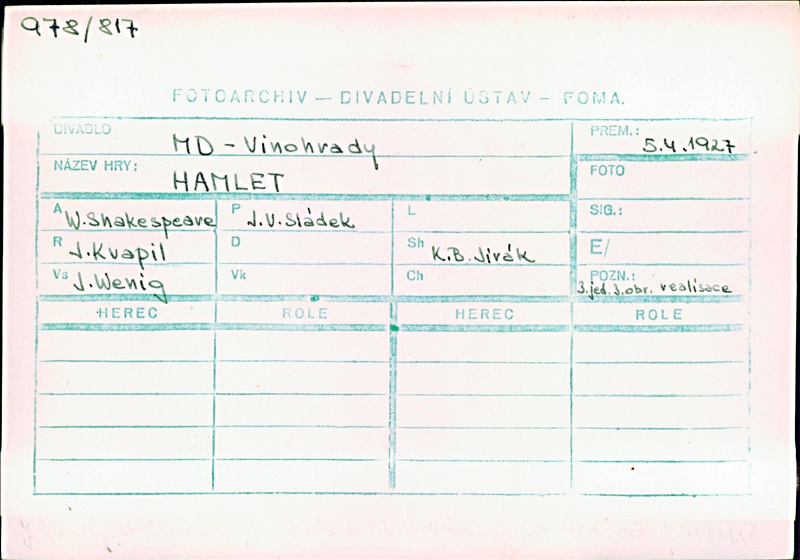 978/817
FOTOARCHIV — DIVADELNÍ ÚSTAV — FOMA.
DIVADLO MD - Vinohrady PREM.: 5.4.1927
NÁZEV HRY: HAMLET FOTO
A W. Shakespeare P J.V. Sládek L SIG.:
R J. Kvapil D Sh K.B. Jirák E/
Vs J. Wenig Vk Ch POZN.: 3.jed. 3.obr. realisace
HEREC ROLE HEREC ROLE